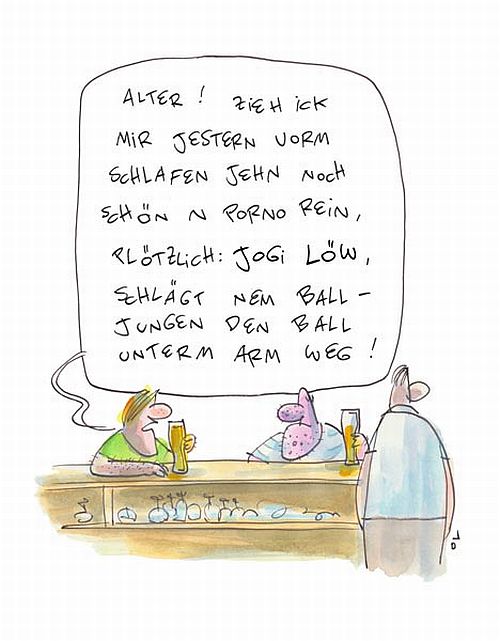 ALTER! ZIEH ICK
MIR JESTERN VORM
SCHLAFEN JEHN NOCH
SCHÖN N PORNO REIN,
PLÖTZLICH: JOGI LÖW,
SCHLÄGT NEM BALL-
JUNGEN DEN BALL
UNTERM ARM WEG!